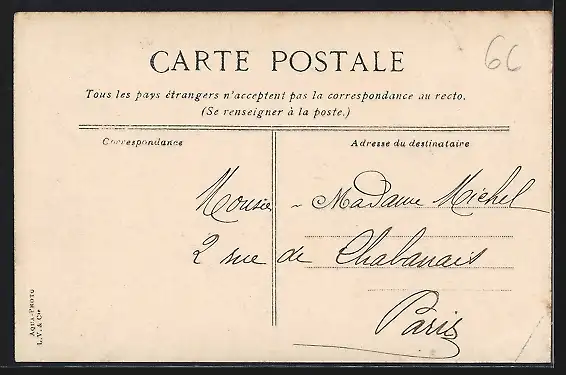 CARTE POSTALE
6C
Tous les pays étrangers n'acceptent pas la correspondance au recto.
(Se renseigner à la poste.)
Correspondance
Adresse du destinataire
Monsie - Madame Michel
2 rue de Chabanais
Paris
AQUA-PHOTO
L. V. & Cie